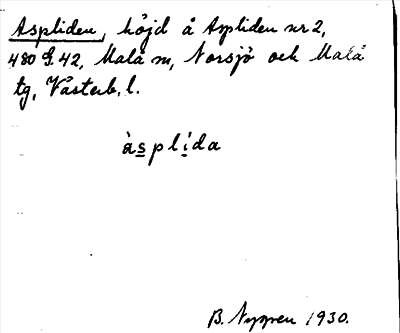 Aspliden, höjd å Aspliden nr 2,
480 G. 42, Malå sn, Norsjö och Malå
tg, Västerb. l.
àsplída
B. Nygren 1930.